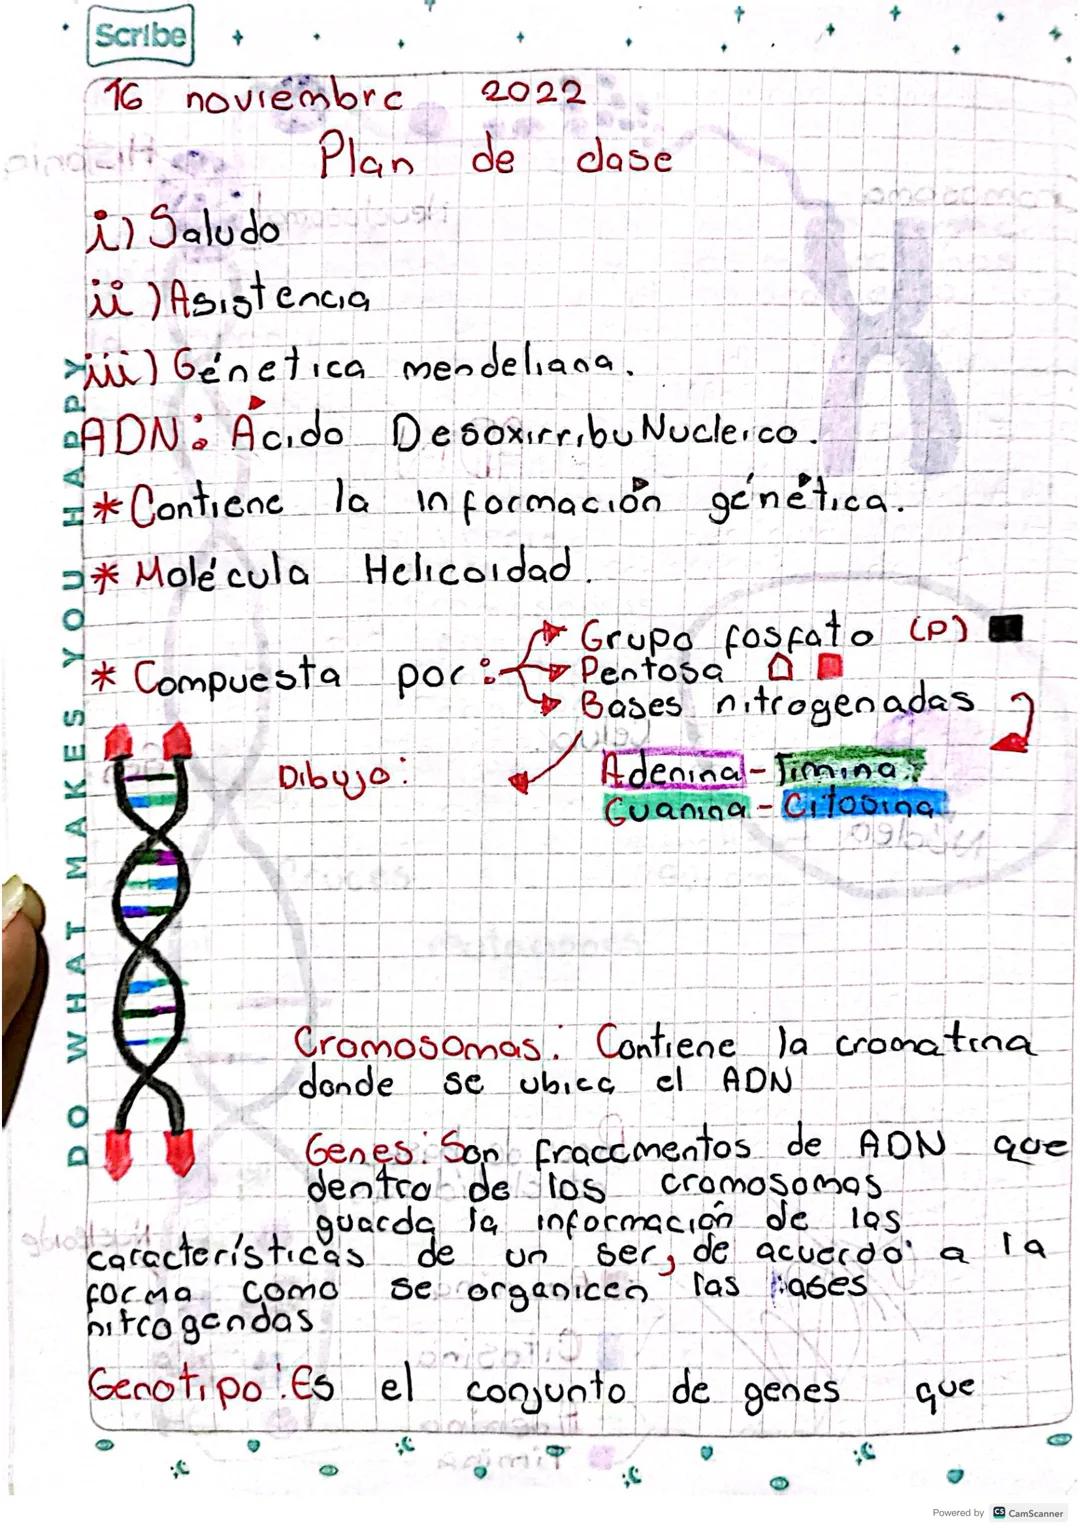 Scribe
16 noviembre 2022
Plan de clase
i) Saludo
ii) Asistencia
iii) Génetica mendeliana.
ADN: Ácido DesoxirribuNucleico.
*Contiene la información génética.
* Molécula Helicoidad.
* Compuesta por:
Grupo fosfato (P)
Pentosa
Bases nitrogenadas
Dibujo:
Adenina - Timina.
Guanina - Citosina
Cromosomas: Contiene la cromatina
donde se ubica el ADN
Genes: Son fraccmentos de ADN que
dentro de los cromosomas
guarda la información de las
características de un ser, de acuerdo a la
forma como se organicen las bases
nitrogendas
Genotipo: Es el conjunto de genes que
DO WHAT MAKES YOU HAPPY
Powered by CS CamScanner